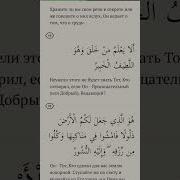 Храните ли вы свои речи в секрете или
же говорите о них вслух, Он ведает о
том, что в груди.
أَلَا يَعْلَمُ مَنْ خَلَقَ وَهُوَ
اللَّطِيفُ الْخَبِيرُ
Неужели этого не будет знать Тот, Кто
сотворил, если Он - Проницательный
Добрый), Ведающий?
هُوَ الَّذِي جَعَلَ لَكُمُ الْأَرْضَ
ذَلُولًا فَامْشُوا فِي مَنَاكِبِهَا وَكُلُوا
مِن رِّزْقِهِ ۖ وَإِلَيْهِ النُّشُورُ
Он - Тот, Кто сделал для вас землю